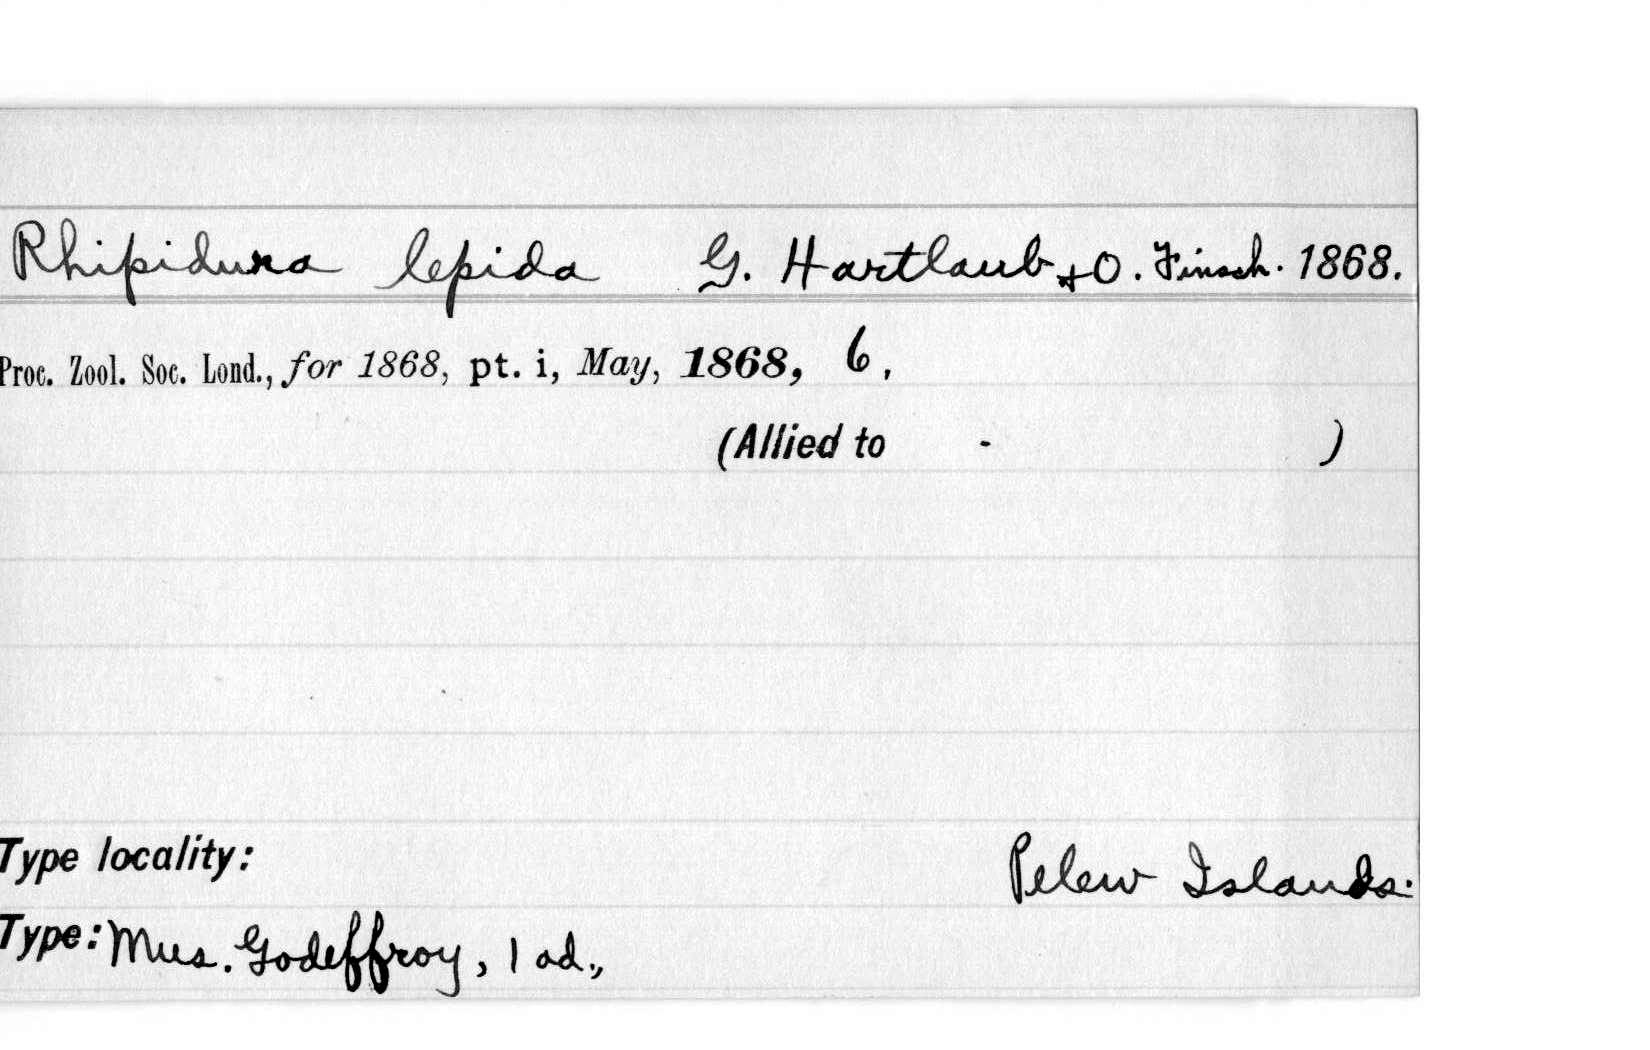 Rhipidura lepida G. Hartlaub & O. Finsch. 1868.
Proc. Zool. Soc. Lond., for 1868, pt. i, May, 1868, 6,
(Allied to - )
Type locality: Pelew Islands.
Type: Mus. Godeffroy, 1 ad.,